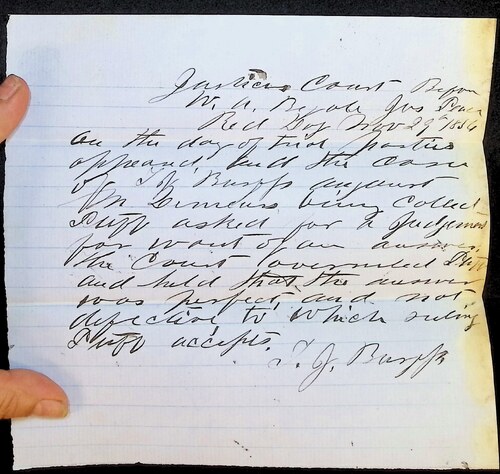 Justices Court Before
W. A. Jus Peace
Red Dog Nov 29th 1856
on the day of trial parties
appeared and the case
of T J Burffs against
being called
Plttff asked for a Judgement
for want of an answer
the Court overruled Plttff
and held that the answer
was perfect and not
defective to which ruling
Plttff accepts.
T. J. Burffs